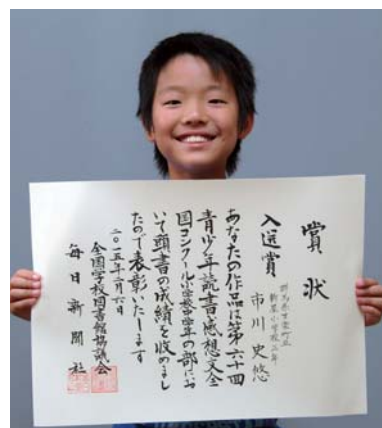 賞状
入選賞
市川史悠
あなたの作品は第六十四
青少年読書感想文全
国コンクール小学校中学年の部にお
いて頭書の成績を収めまし
たので表彰いたします
二〇一五年二月六日
全国学校図書館協議会
毎日新聞社